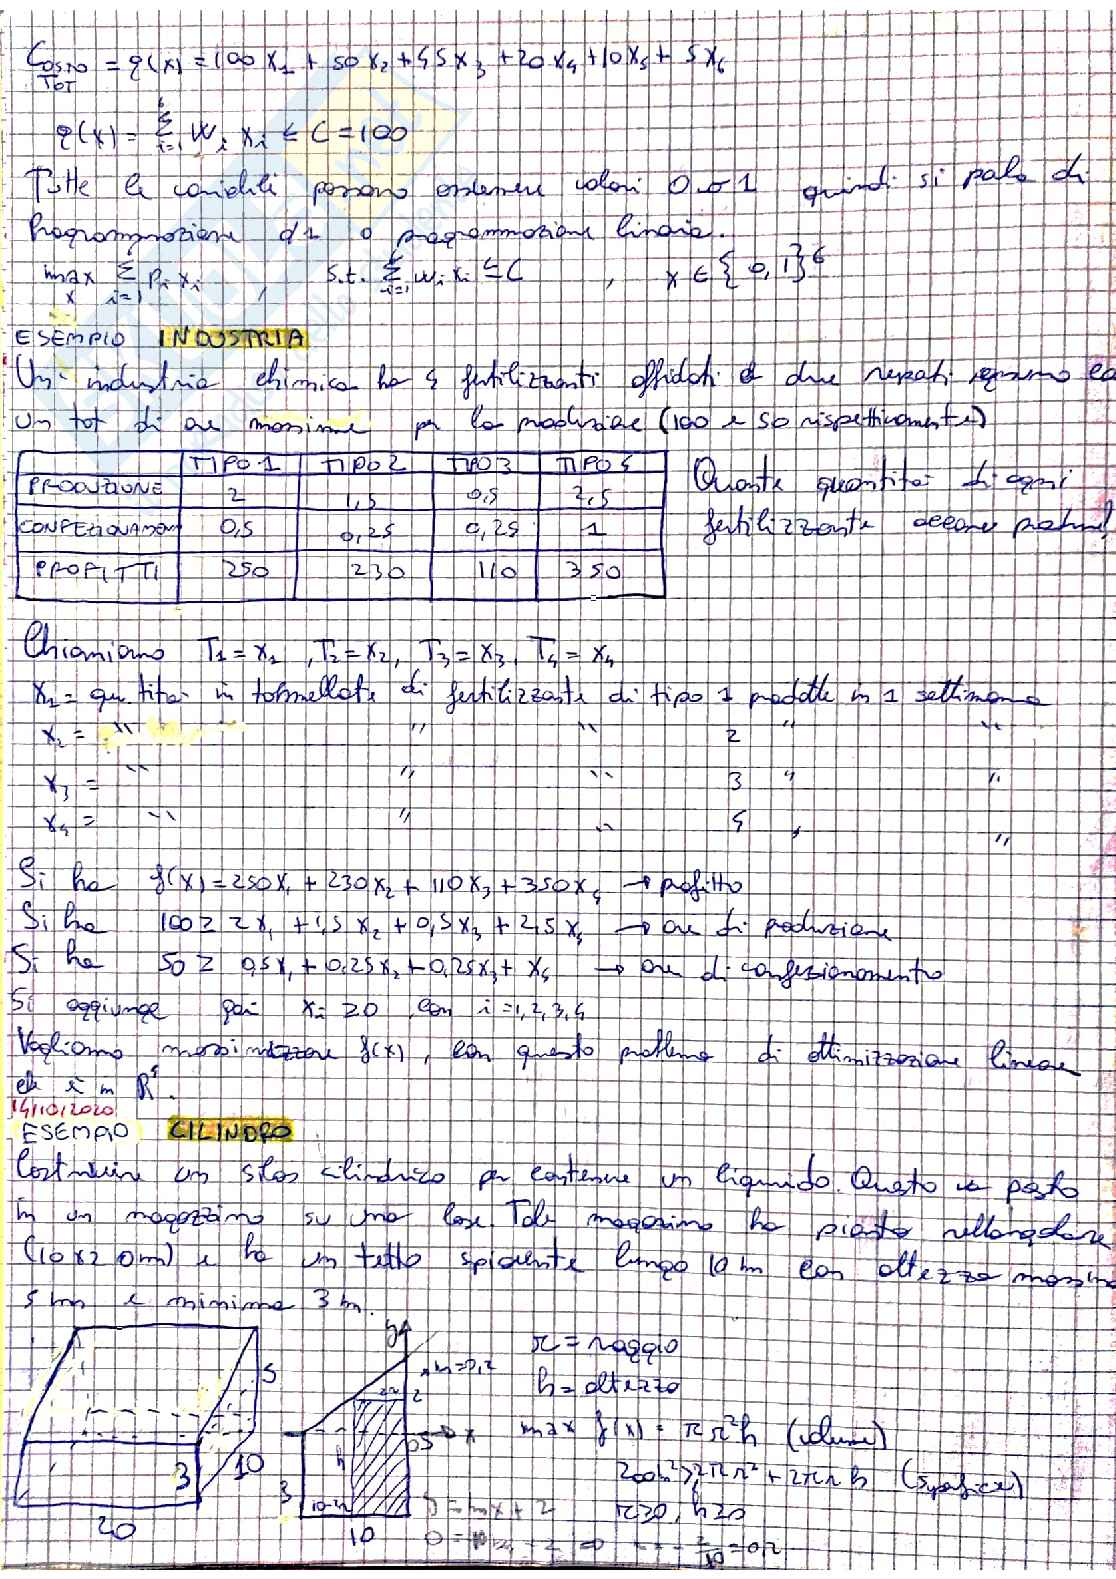 Costo TOT = q(x) = 100x₁ + 50x₂ + 45x₃ + 20x₄ + 10x₅ + 5x₆
q(x) = Σᵢ₌₁⁶ wᵢ xᵢ ≤ C = 100
Tutte le variabili possono assumere valori 0 o 1 quindi si parla di
Programmazione 01 o programmazione binaria.
max x Σᵢ₌₁ pᵢ xᵢ , s.t. Σᵢ₌₁ wᵢ xᵢ ≤ C , x ∈ {0,1}⁶
ESEMPIO INDUSTRIA
Un' industria chimica ha 4 fertilizzanti affidati a due reparti
un tot di ore massime per la produzione (100 e 50 rispettivamente)
TIPO 1 TIPO 2 TIPO 3 TIPO 4
PRODUZIONE 2 1,5 0,5 2,5
CONFEZIONAMEN 0,5 0,25 0,25 1
PROFITTI 250 230 110 350
Quante quantità di ogni
fertilizzante occorre
Chiamiamo T₁ = x₁, T₂ = x₂, T₃ = x₃, T₄ = x₄
x₁ = quantità in tonnellate di fertilizzante di tipo 1 prodotte in 1 settimana
x₂ = " " " 2 " "
x₃ = " " " 3 " "
x₄ = " " " 4 " "
Si ha f(x) = 250x₁ + 230x₂ + 110x₃ + 350x₄ → profitto
Si ha 100 ≥ 2x₁ + 1,5x₂ + 0,5x₃ + 2,5x₄ → ore di produzione
Si ha 50 ≥ 0,5x₁ + 0,25x₂ + 0,25x₃ + x₄ → ore di confezionamento
Si aggiunge poi xᵢ ≥ 0 con i = 1,2,3,4
Vogliamo massimizzare f(x), con questo problema di ottimizzazione lineare
che è in R⁴.
14/10/2020
ESEMPIO CILINDRO
Costruire un silos cilindrico per contenere un liquido. Questo va posto
in un magazzino su una base. Tale magazzino ha pianta rettangolare
(10x20m) e ha un tetto spiovente lungo 10 m con altezza massima
5m e minima 3m.
5
3
10
20
y
m = 0,2
2r
2
x
h
3
10-2r
10
y = mx + 2
r = raggio
h = altezza
max f(x) = πr²h (volume)
200m² ≥ 2πr² + 2πrh (superficie)
r ≥ 0, h ≥ 0
2/10 = 0,2